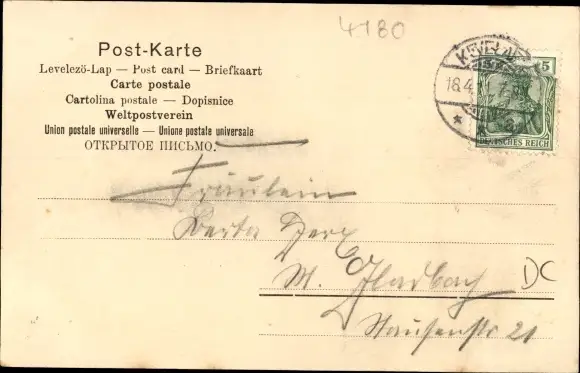 4180
Post-Karte
Levelezö-Lap — Post card — Briefkaart
Carte postale
Cartolina postale — Dopisnice
Weltpostverein
Union postale universelle — Unione postale universale
ОТКРЫТОЕ ПИСЬМО.
KEVELAER
16.4
5
DEUTSCHES REICH
Fräulein
Berta
M. Gladbach
DC
21